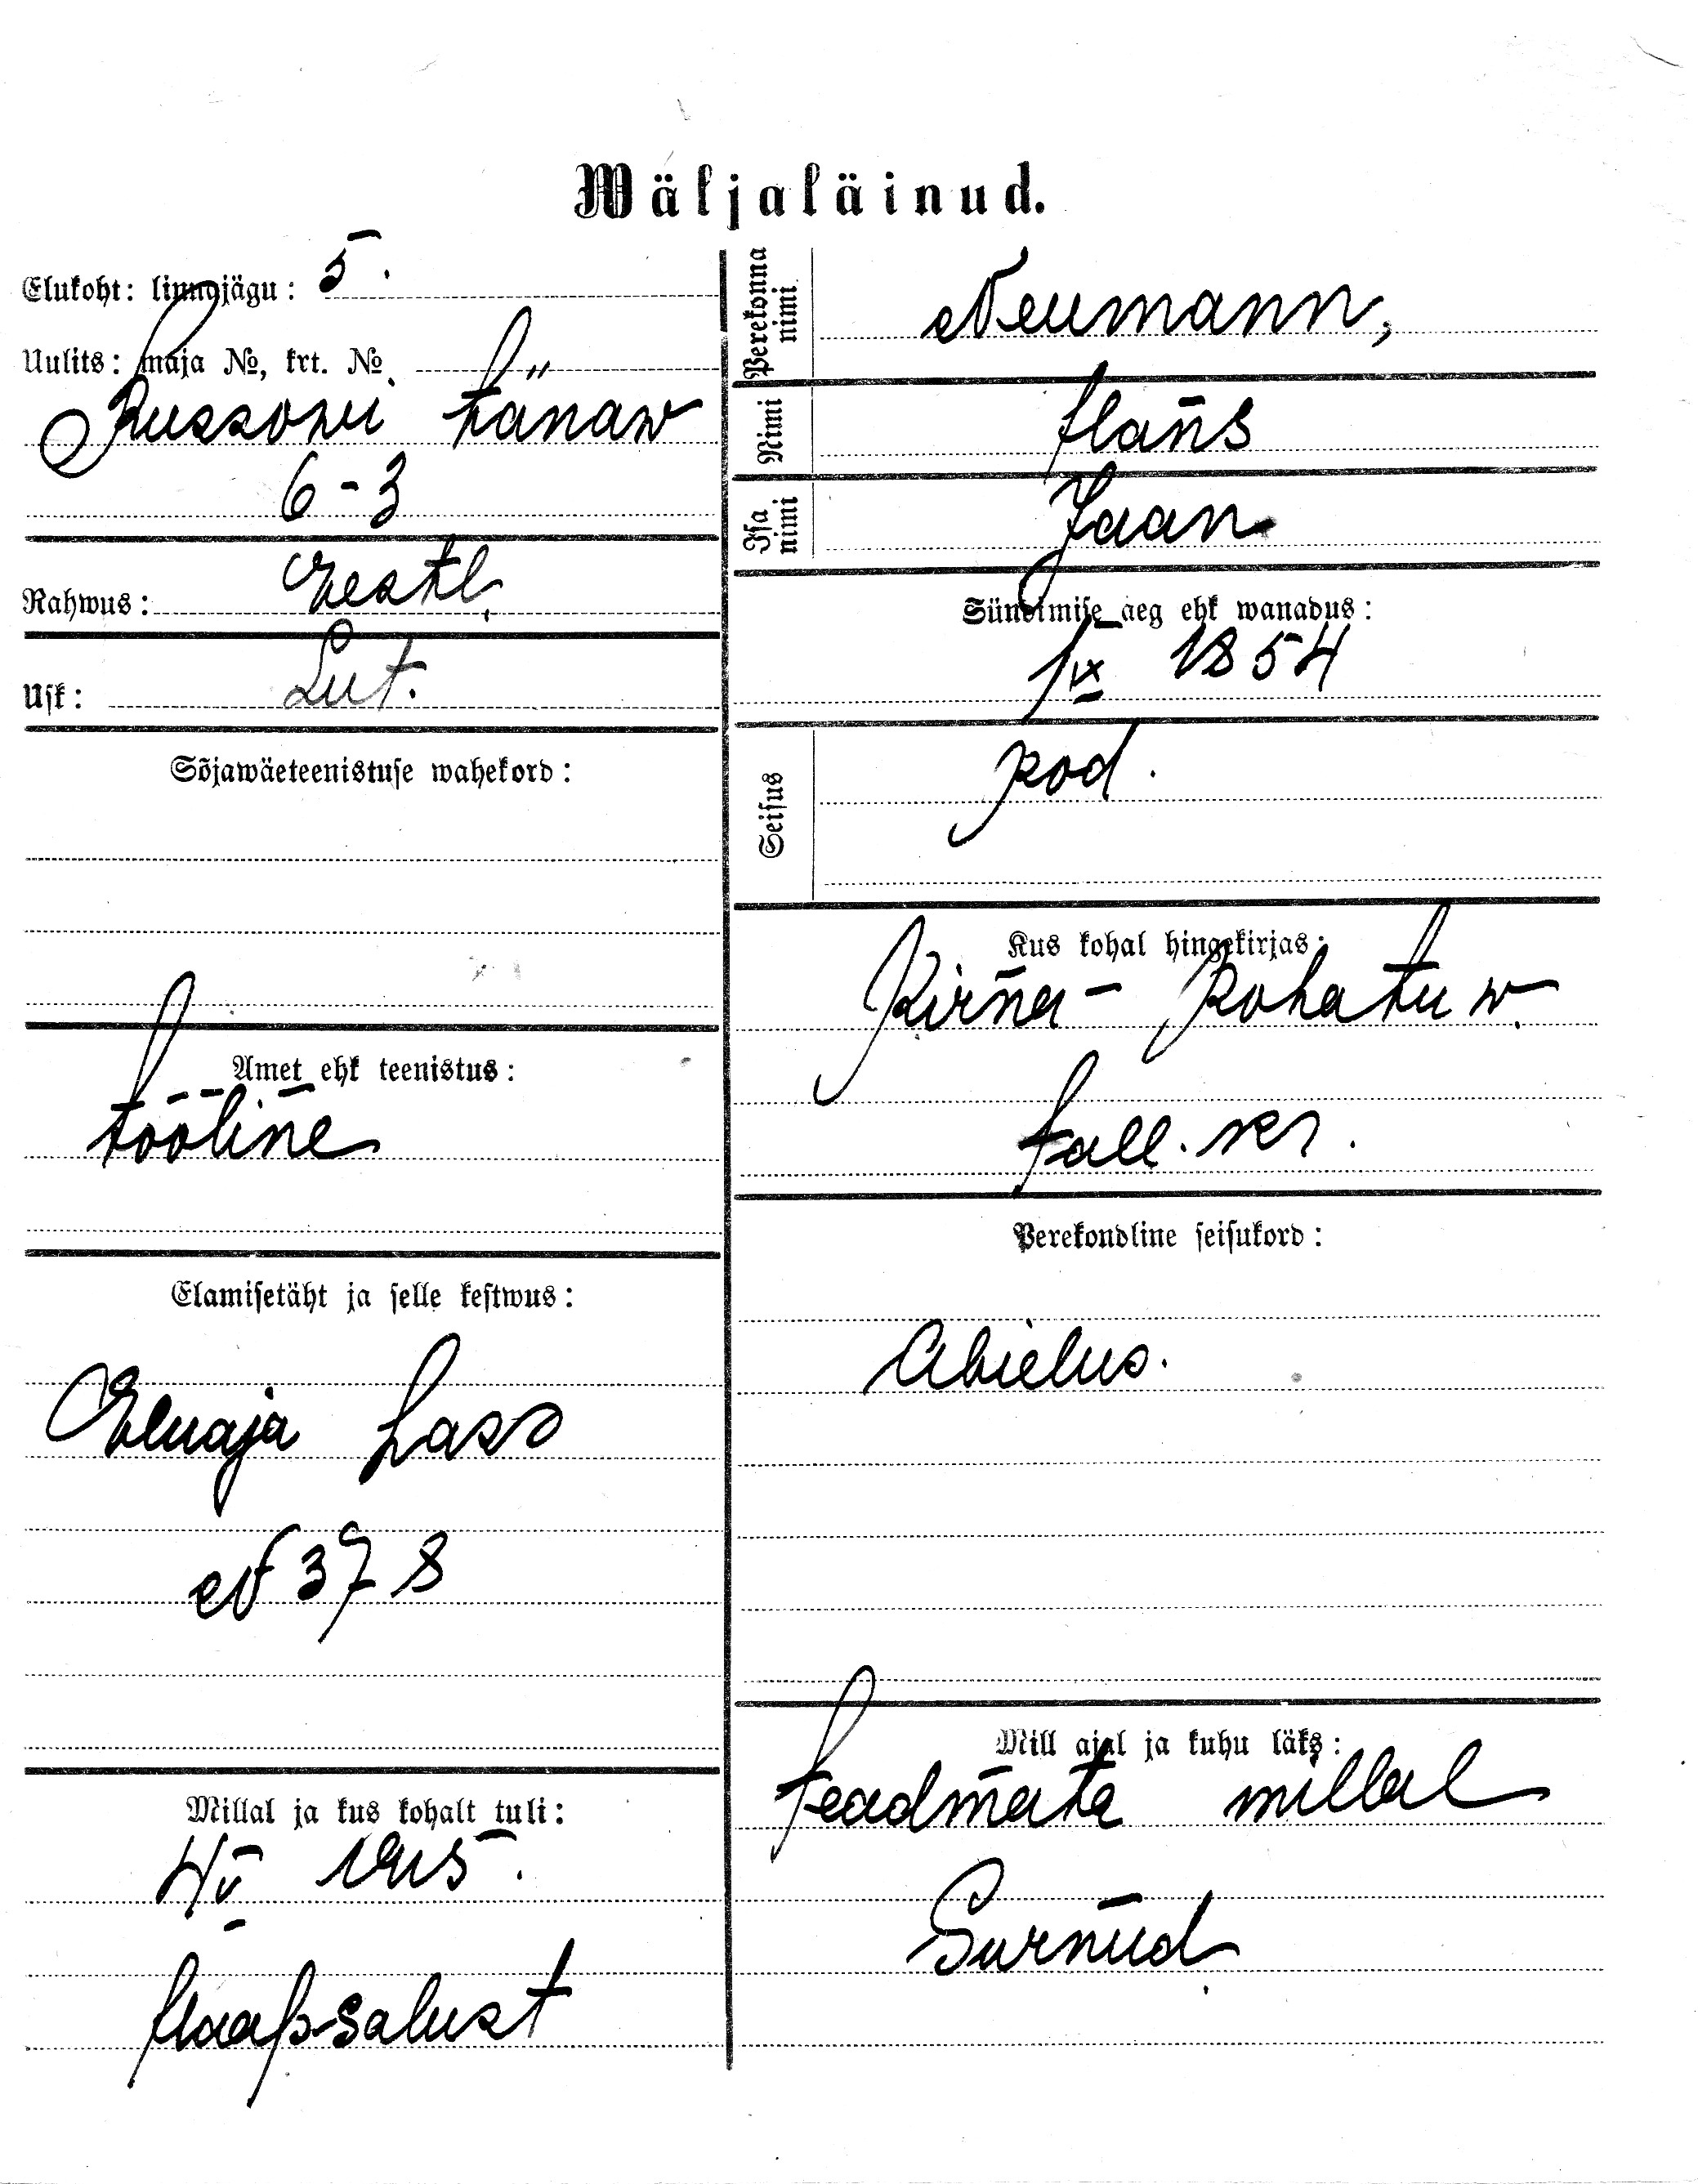 Wäljaläinud.
Elukoht: linnajägu: 5.
Uulits: maja №, krt. №
tänaw
6-3
Rahwus: Eestl.
Usk: Lut.
Sõjawäeteenistuse wahekord:
Amet ehk teenistus:
tööline
Elamisetäht ja selle kestwus:
Eluaja pass
N 378
Millal ja kus kohalt tuli:
4 V 1915.
Haapsalust
Perekonna nimi
Neumann,
Nimi
Hans
Isa nimi
Jaan
Sündimise aeg ehk wanadus:
1 IX 1854
Seisus
kod.
Kus kohal hingekirjas:
Kirna-Kohatu w.
Tall. kr.
Perekondline seisukord:
Abielus.
Mill ajal ja kuhu läks:
Teadmata millal
Surnud